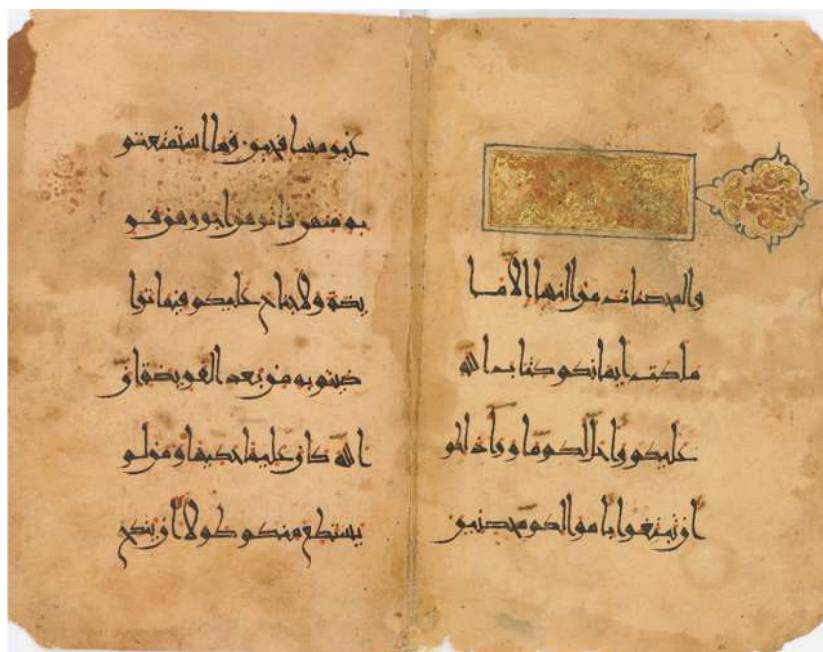 والمحصنات من النسا الا ما
ملكت ايمانكم كتاب الله
عليكم واحل لكم ما ورا ذلكم
ان تبتغوا باموالكم محصنين
غير مسافحين فما استمتعتم
به منهن فاتوهن اجورهن فر
يضة ولا جناح عليكم فيما ترا
ضيتم به من بعد الفريضة ان
الله كان عليما حكيما ومن لم
يستطع منكم طولا ان ينكح